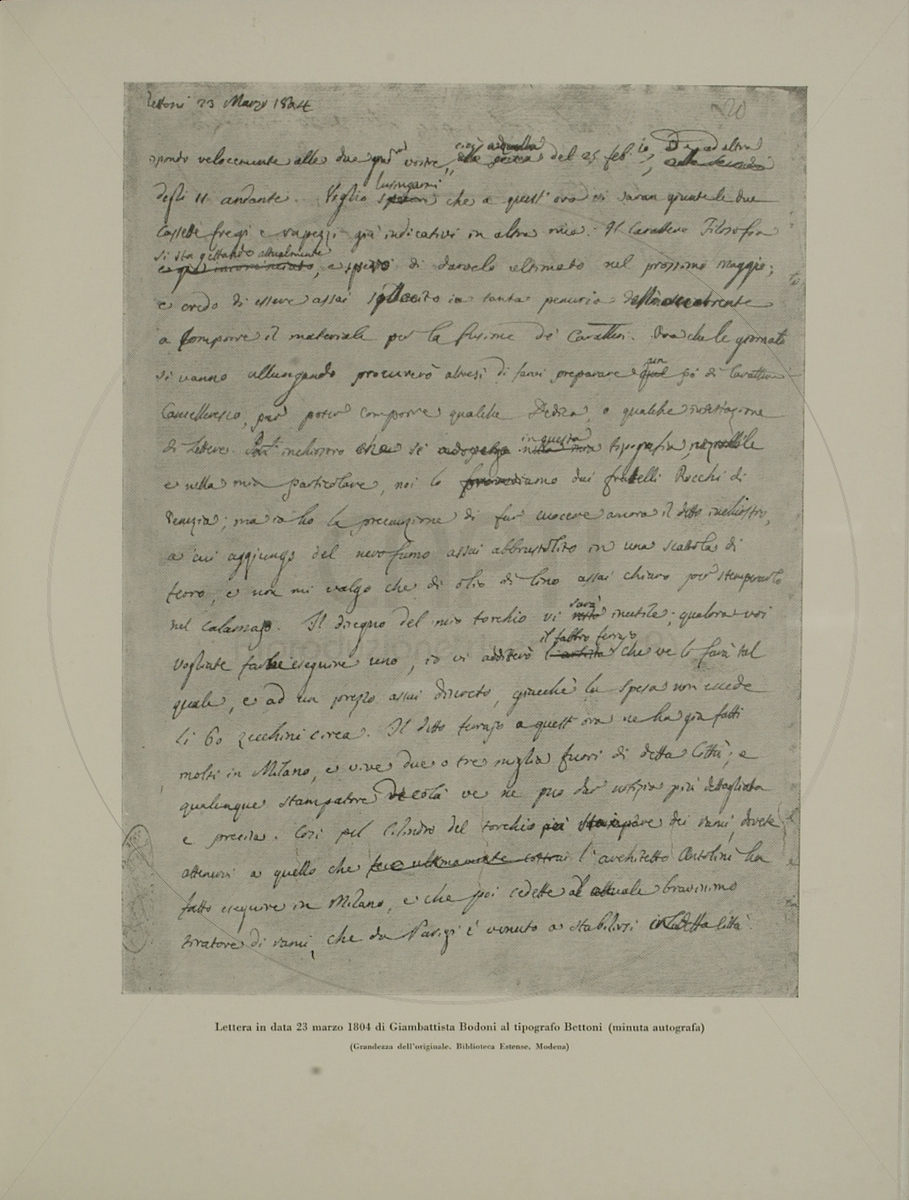 Bettoni 23 Marzo 1804
20
spondo velocemente alle due vostre, cioè a quella del 25 feb.io, ed altra
degli 11 andante. Voglio lusingarmi che a quest'ora vi saran giunte le due
Cassette fregi e già indicativi in altra mia. Il Carattere Filosofia
si sta gettando attualmente, e spero di darvelo ultimato nel prossimo maggio;
e credo di essere assai sollecito in tanta penuria dell'occorrente
a Comporre il materiale per la fusione de' Caratteri. Ora che le giornate
si vanno allungando procurerò altresì di farvi preparare un pò di Carattere
Cancelleresco, per poter comporre qualche Dedica, o qualche intestazione
di Lettere. inchiostro che si adopera in questa tipografia,
e nella mia particolare, noi lo provvediamo dai fratelli Rocchi di
Venezia; ma io ho la precauzione di far cuocere ancora il detto inchiostro,
a cui aggiungo del nero fumo assai abbrustolito in una scattola di
ferro, e non mi valgo che di olio di lino assai chiaro per stemperarlo
nel calamajo. Il disegno del mio torchio vi sarà inutile; qualora voi
vogliate farne eseguire uno, io vi additerò il fabbro ferrajo che ve lo farà tal
quale, e ad un prezzo assai discreto, giacchè la spesa non eccede
li 60 zecchini circa. Il detto ferrajo a quest'ora ne ha già fatti
molti in Milano, e vive due o tre miglia fuori di detta Città; e
qualunque stampatore di colà ve ne può dar notizia più dettagliata
e precisa. Così pel Cilindro del torchio per istampare dei rami, dovete
attenervi a quello che l'architetto Antolini ha
fatto eseguire in Milano, e che poi cedette al attuale bravissimo
tiratore di rami, che da Parigi è venuto a stabilirsi in detta città.
Lettera in data 23 marzo 1804 di Giambattista Bodoni al tipografo Bettoni (minuta autografa)
(Grandezza dell'originale. Biblioteca Estense, Modena)